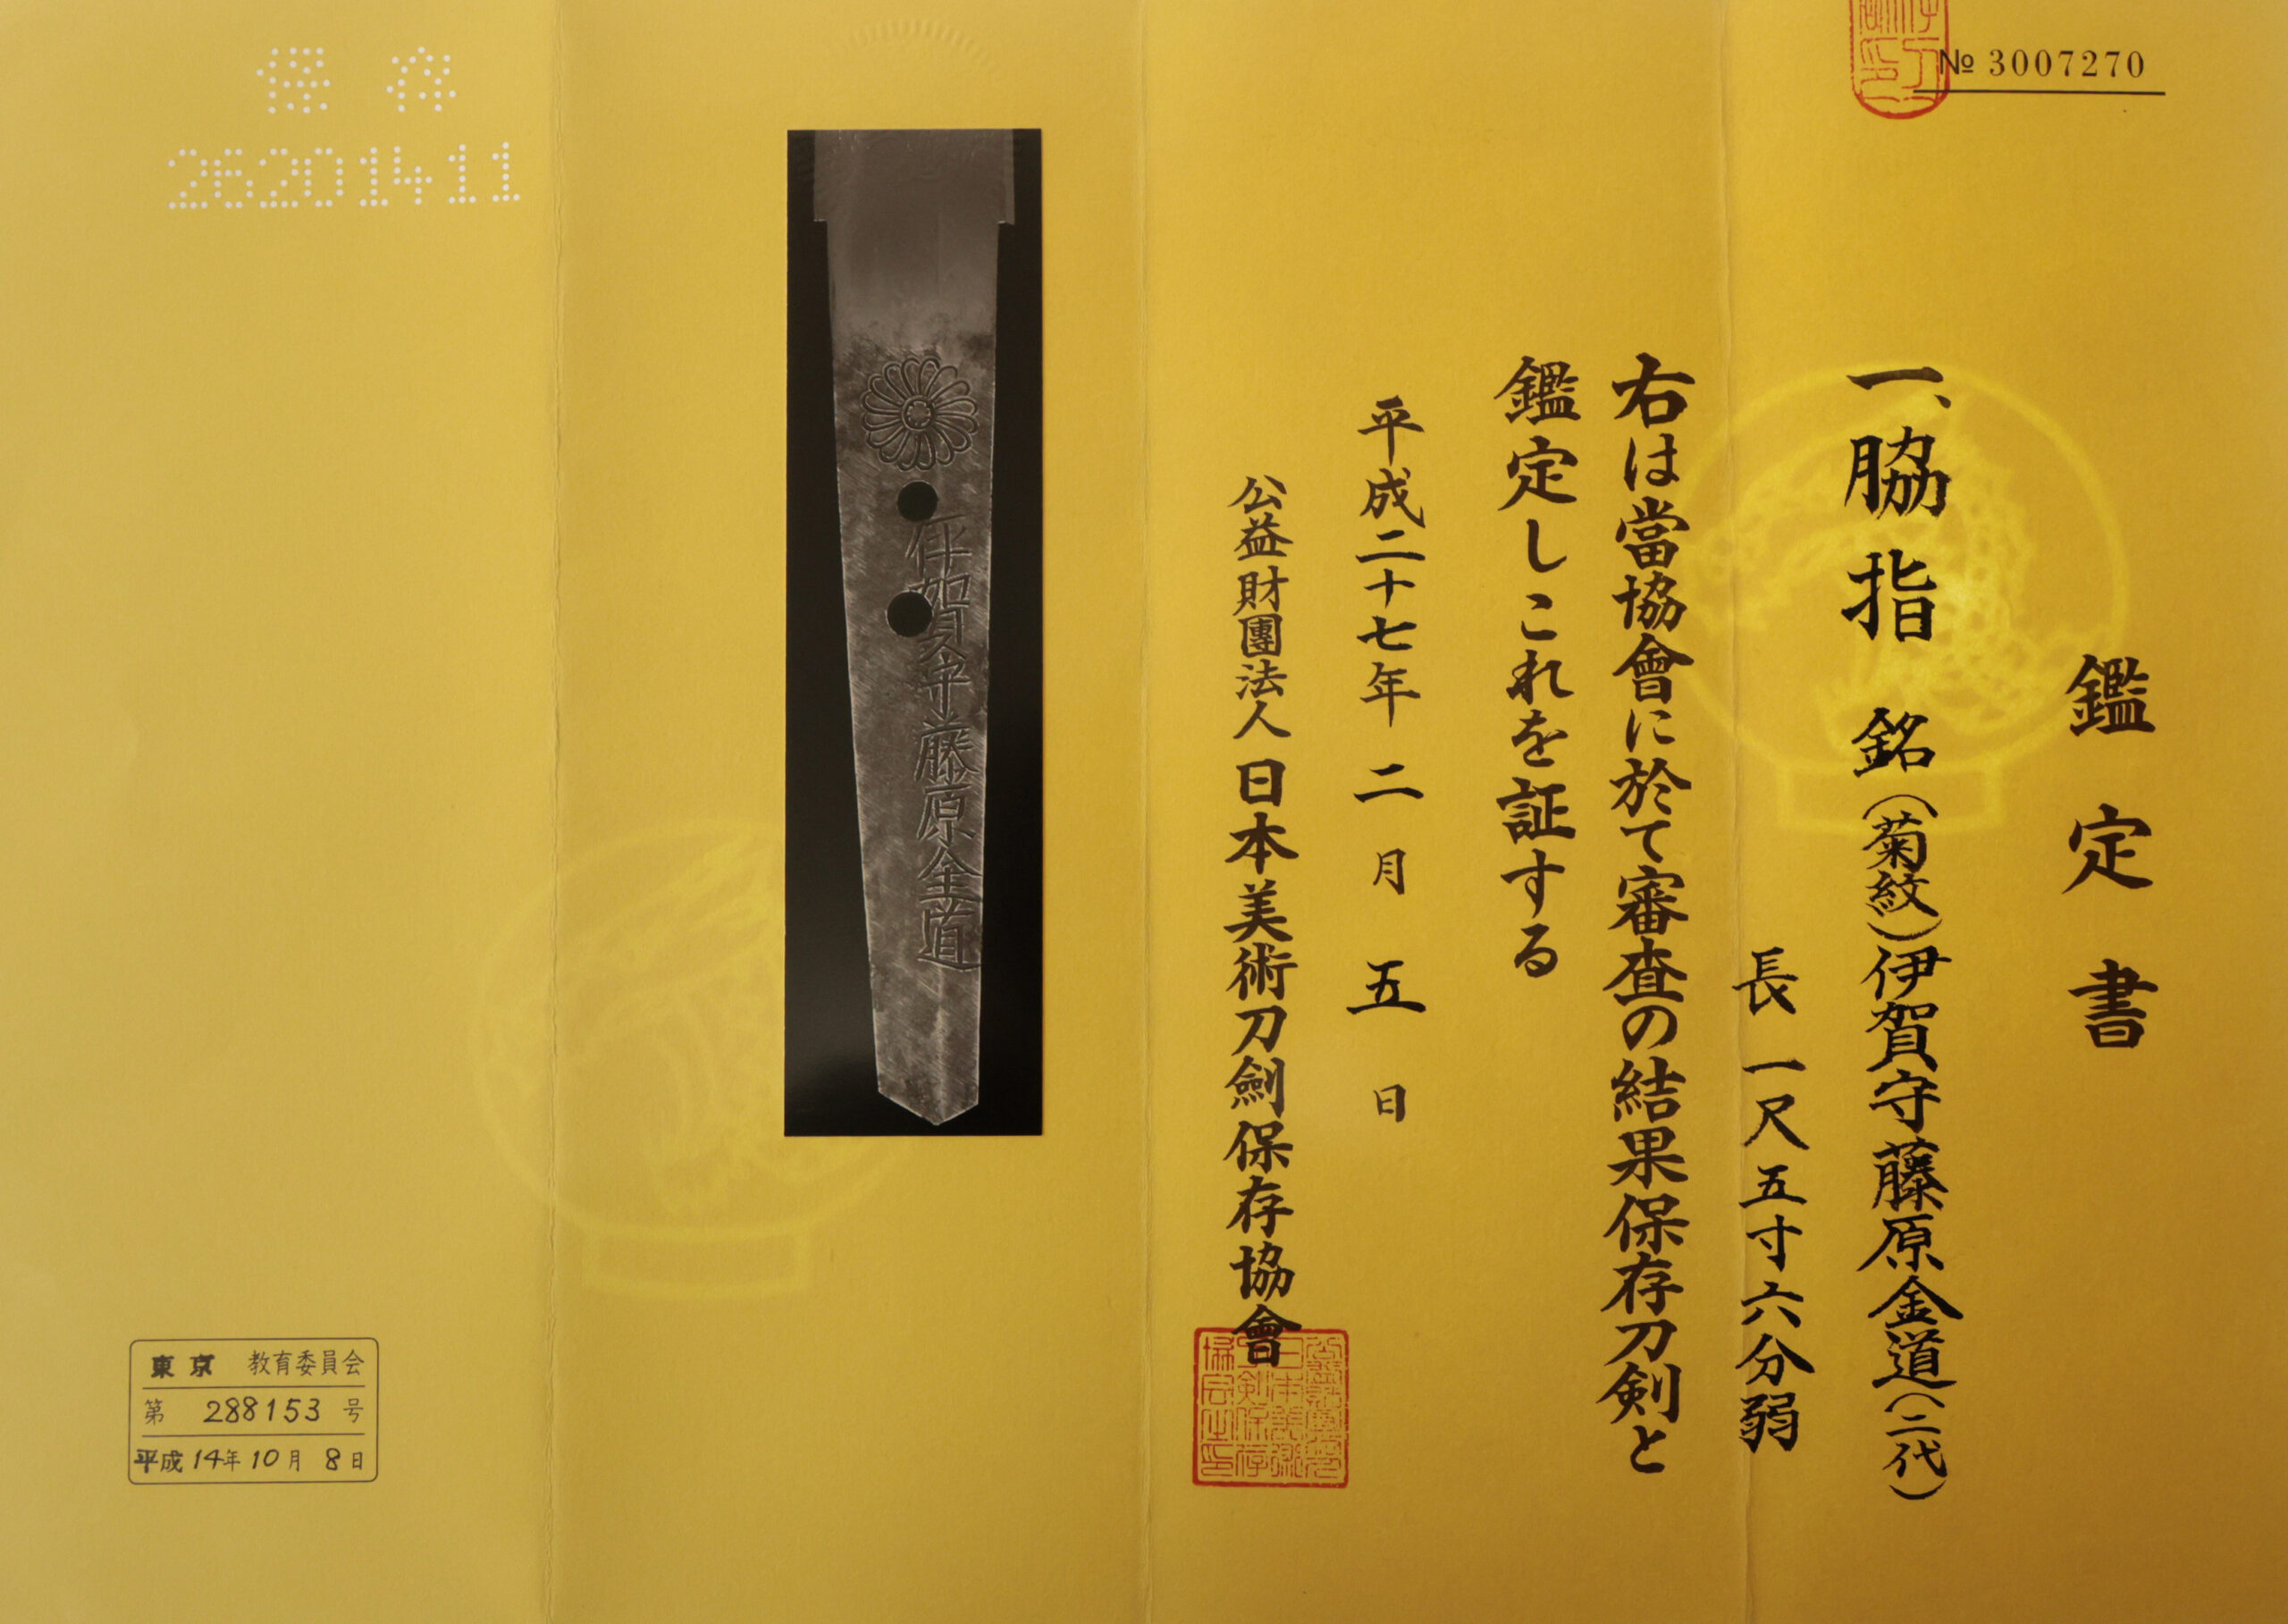 № 3007270
鑑定書
一、脇指 銘(菊紋)伊賀守藤原金道(二代)
長 一尺五寸六分弱
右は當協會に於て審査の結果保存刀剣と
鑑定しこれを証する
平成二十七年 二月 五日
公益財團法人 日本美術刀劍保存協會
伊賀守藤原金道
保存
26201411
東京 教育委員会
第 288153 号
平成 14年 10月 8日